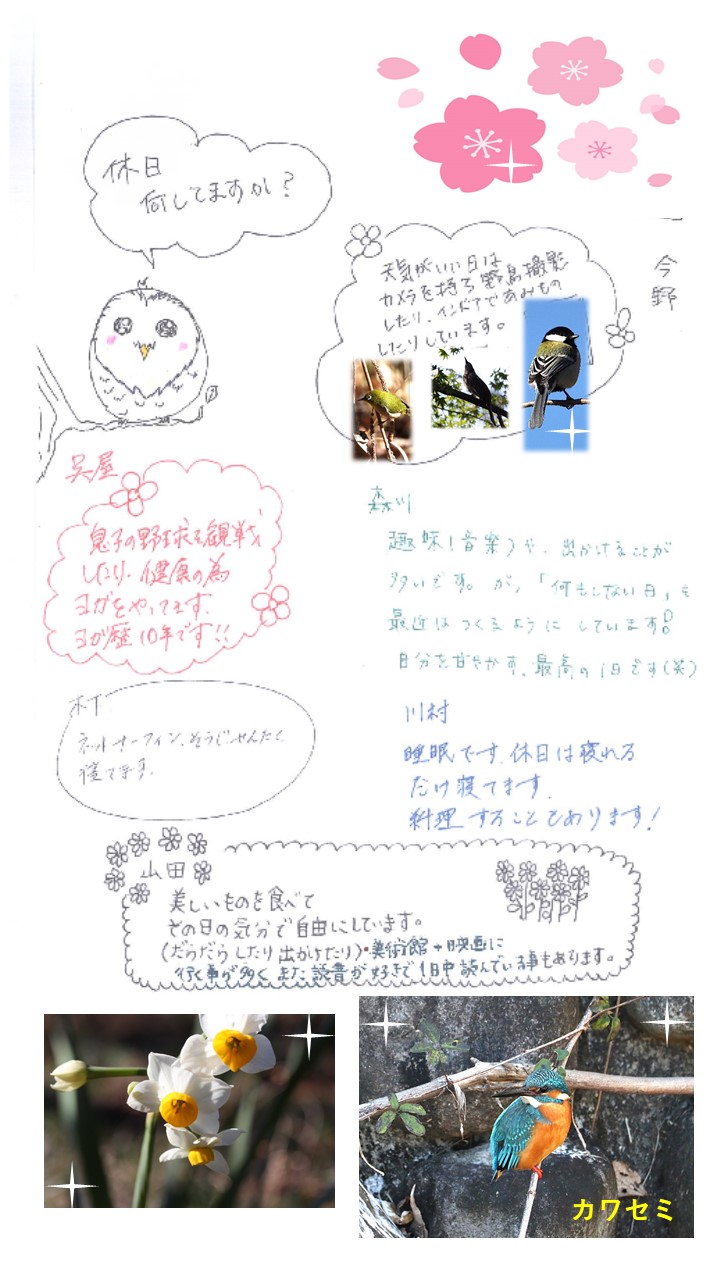 休日
何してますか?
今野
天気がいい日は
カメラを持ち野鳥撮影
したり、インドアであみもの
したりしています。
呉屋
息子の野球を観戦
したり、健康の為
ヨガをやってます。
ヨガ歴10年です!!
森川
趣味(音楽)や、出かけることが
多いです。が、「何もしない日」も
最近はつくるようにしています。
自分を甘やかす、最高の1日です(笑)
木下
ネットサーフィン、そうじせんたく
寝てます。
川村
睡眠です。休日は寝れる
だけ寝てます。
料理することもあります!
山田
美しいものを食べて
その日の気分で自由にしています。
(だらだらしたり出かけたり)・美術館や映画に
行く事が多く、また読書が好きで1日中読んでいる事もあります。
カワセミ